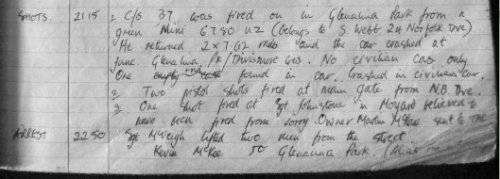 SHOTS. 2115 1 C/S 37 was fired on in Glenalina Park from a
green Mini 6780 UZ (belongs to S. Webb 24 Norfolk Dve)
He returned 2 x 7.62 rnds and the car crashed at
junc. Glenalina Pk / Divismore Gds. No civilian cas only
One empty case found in car. Crashed in civilian car.
2 Two pistol shots fired at main gate from N.B. Dve.
2 One shot fired at Sgt Johnstone in Moyard believed to
have been fired from lorry. Owner Martin McKee sent to the
ARREST 2250 Sgt McVeigh lifted two men from the street.
Kevin McKee 50 Glenalina Park.